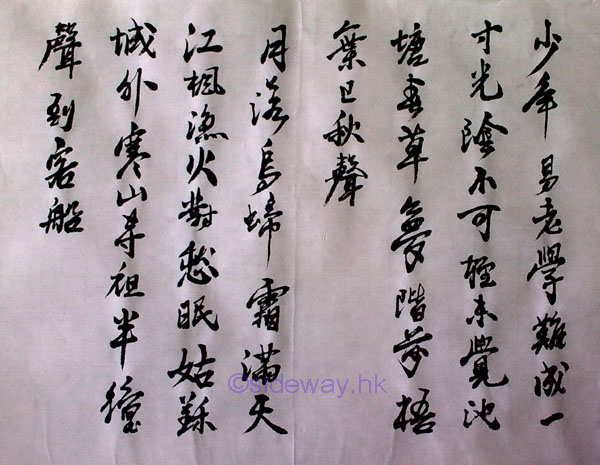 少年易老學難成一
寸光陰不可輕未覺池
塘春草夢階前梧
葉已秋聲
月落烏啼霜滿天
江楓漁火對愁眠姑蘇
城外寒山寺半鐘
聲到客船
©sideway.hk